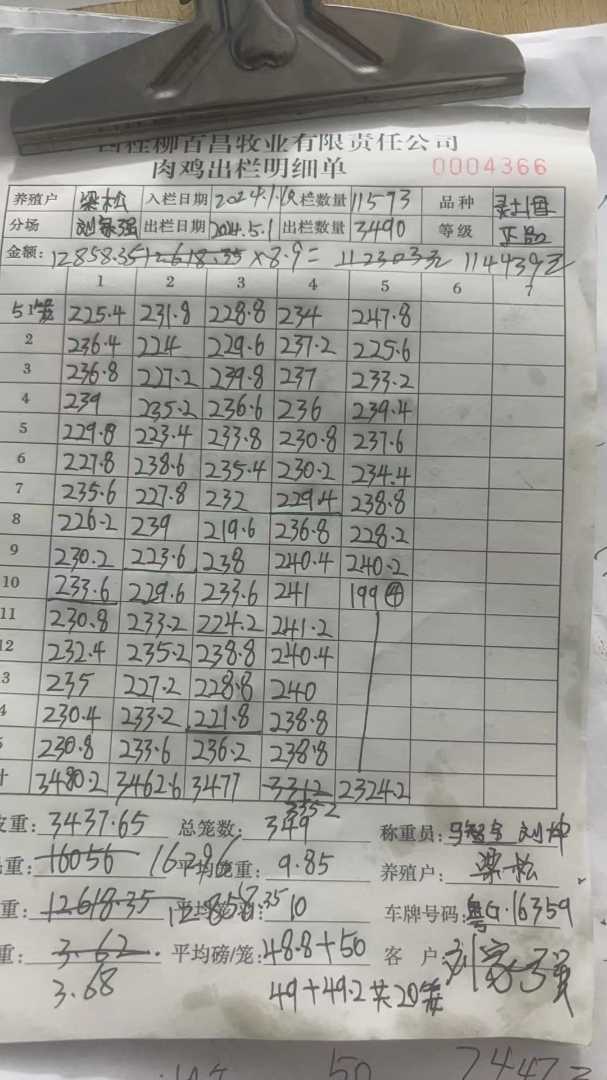 柳百昌牧业有限责任公司
肉鸡出栏明细单 0004366
养殖户 梁松 入栏日期 2024.1. 栏数量 11593 品种
分场 刘家强 出栏日期 2024.5.1 出栏数量 3490 等级 正品
金额: 12858.35 12618.35 ×8.9= 112303元 114439元
1 2 3 4 5 6 7
5笼 225.4 231.8 228.8 234 247.8
2 236.4 224 229.6 237.2 225.6
3 236.8 227.2 239.8 237 233.2
4 239 235.2 236.6 236 239.4
5 229.8 223.4 233.8 230.8 237.6
6 227.8 238.6 235.4 230.2 234.4
7 235.6 227.8 232 229.4 238.8
8 226.2 239 219.6 236.8 228.2
9 230.2 223.6 238 240.4 240.2
10 233.6 229.6 233.6 241 199 ④
11 230.8 233.2 224.2 241.2
12 232.4 235.2 238.8 240.4
3 235 227.2 228.8 240
4 230.4 233.2 221.8 238.8
230.8 233.6 236.2 238.8
3480.2 3462.6 3477 3312 2324.2
3552
重: 3437.65 总笼数: 349 称重员: 刘坤
重: 16056 16296 平均 重: 9.85 养殖户: 梁松
重: 12618.35 12858.35 平均 10 车牌号码: 粤G·16359
重: 3.62 平均磅/笼: 48.8+50 客户: 刘家强
3.68 49+49.2 共20笼
50